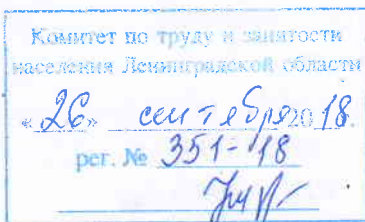 Комитет по труду и занятости
населения Ленинградской области
«26» сентября 2018.
рег. № 351-18